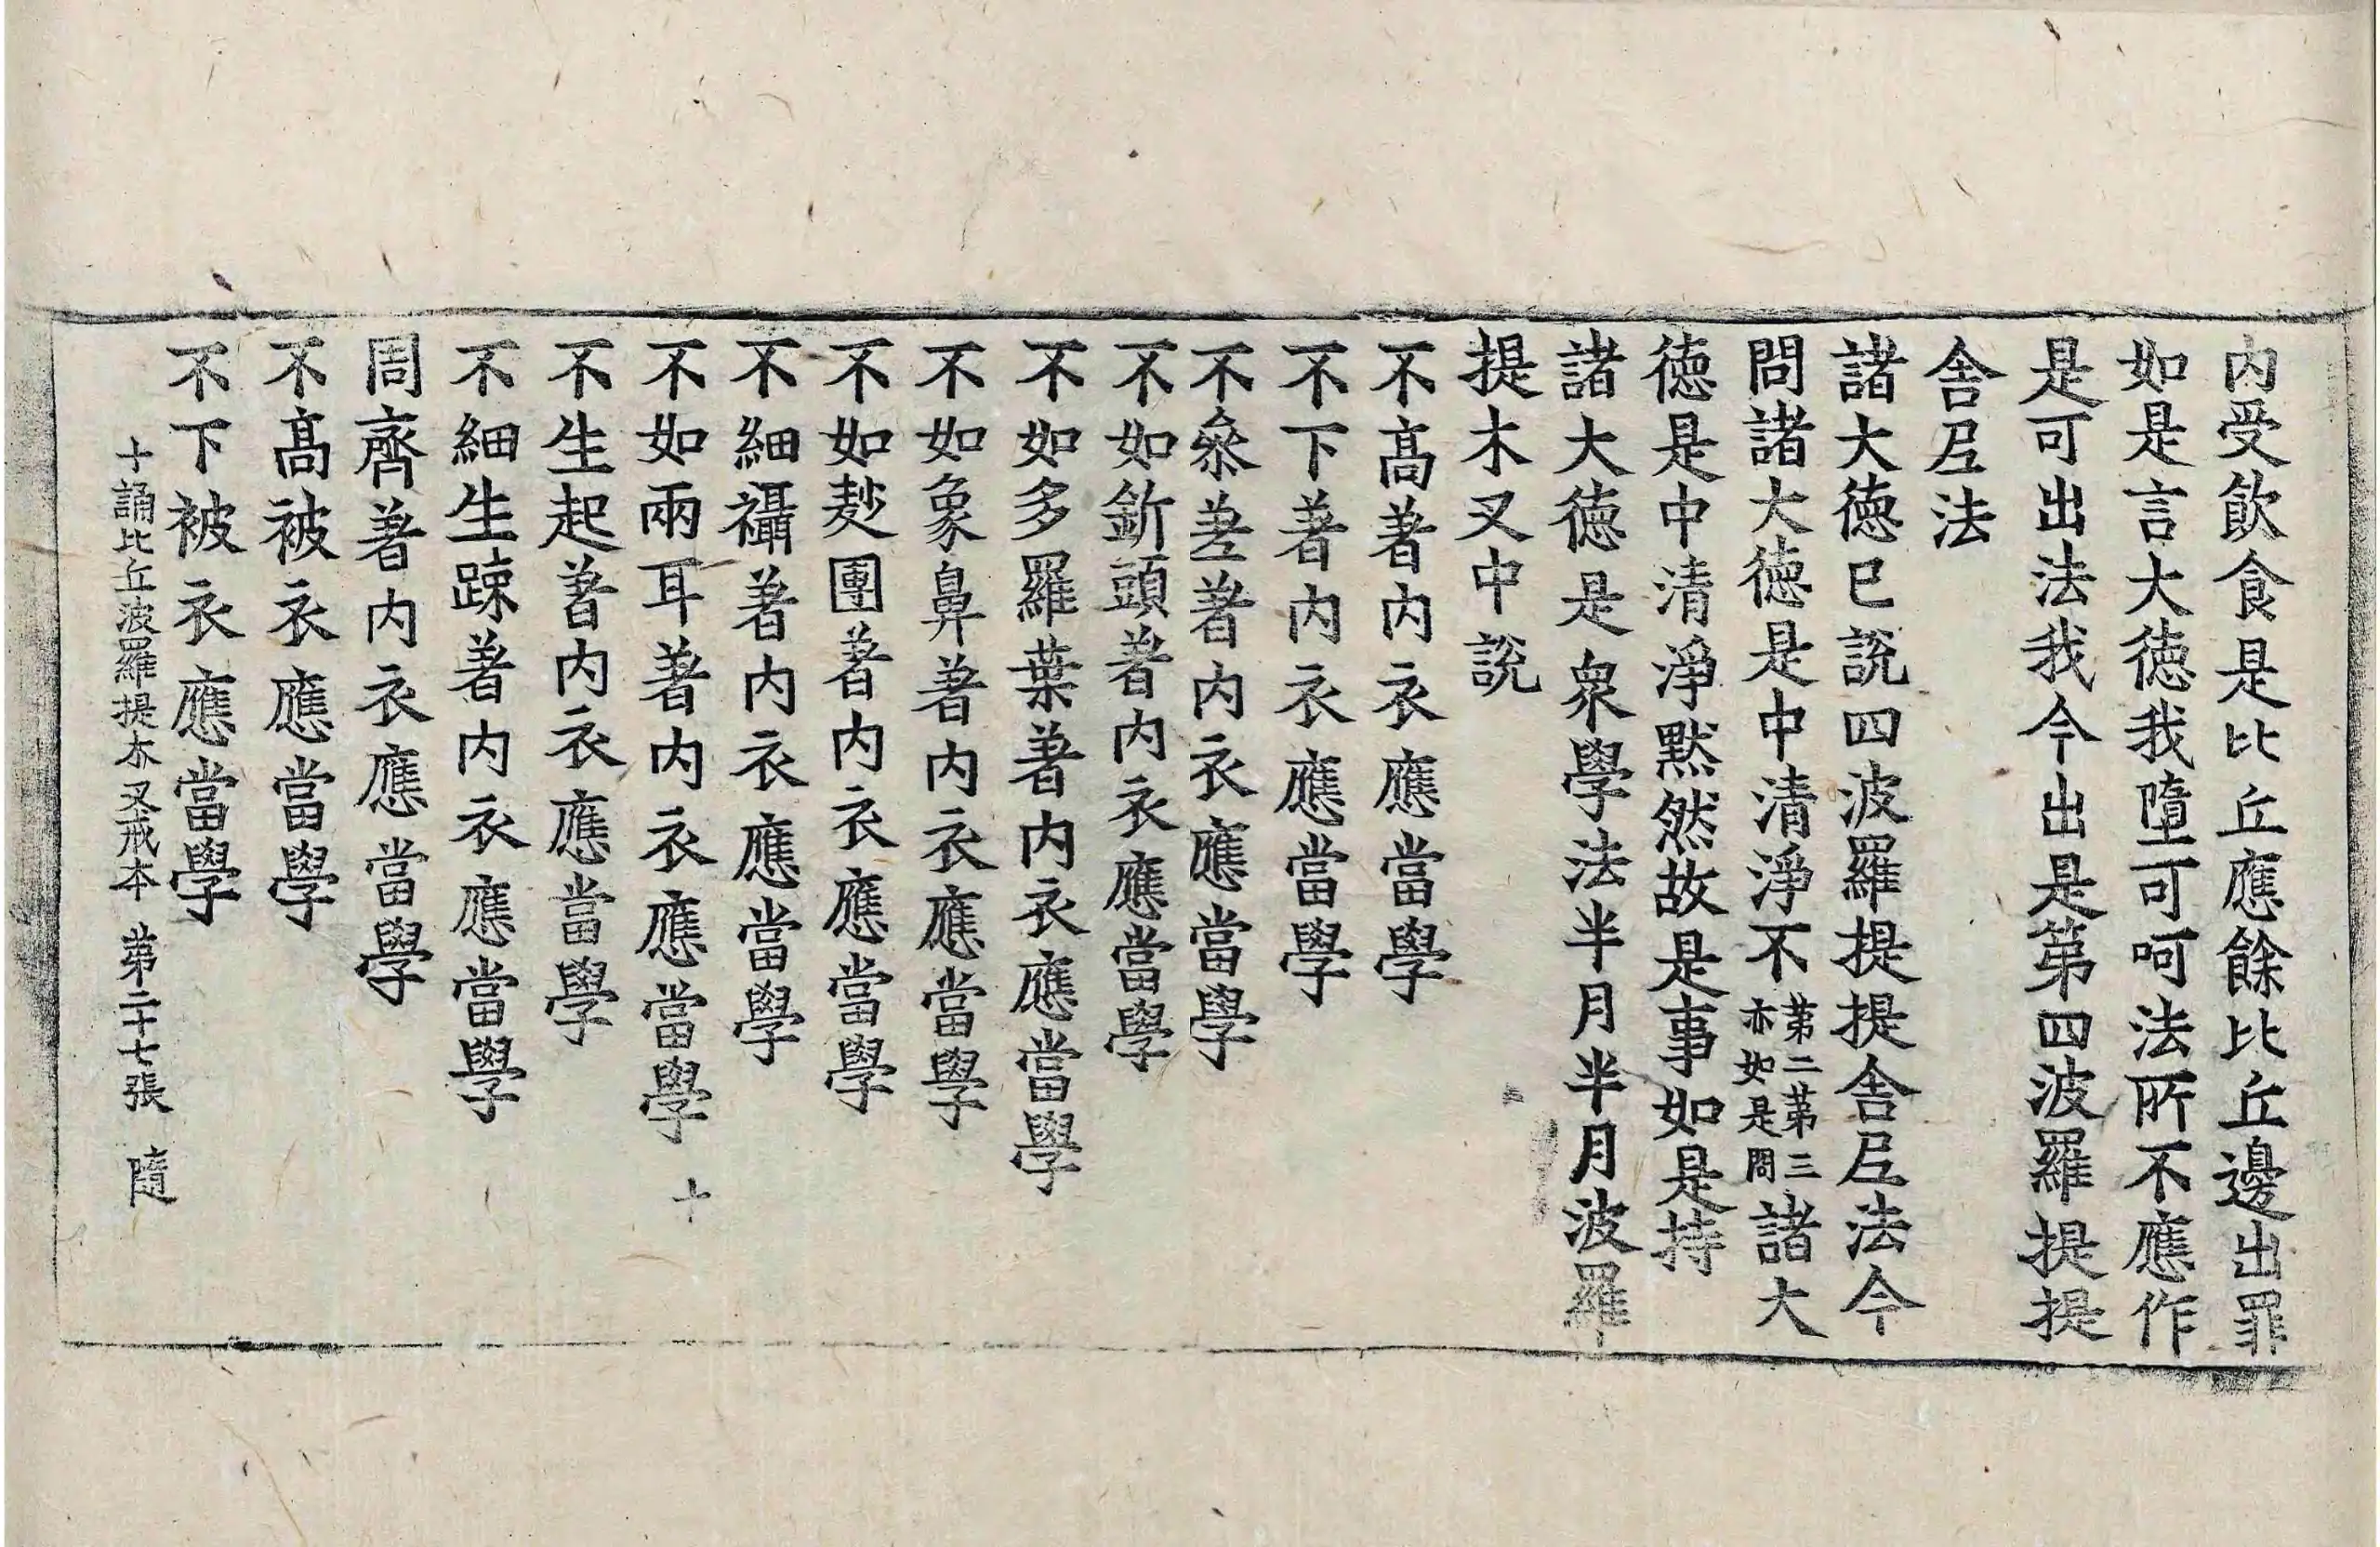 內受飮食是比丘應餘比丘邊出罪
如是言大徳我墮可呵法所不應作
是可出法我今出是第四波羅提提
舎𡰱法
諸大徳已說四波羅提提舎𡰱法今
問諸大徳是中清淨不第二第三亦如是問諸大
徳是中清淨黙然故是事如是持
諸大徳是衆學法半月半月波羅
提木叉中說
不髙著内衣應當學
不下著内衣應當學
不叅差著内衣應當學
不如釿頭著内衣應當學
不如多羅葉著内衣應當學
不如象鼻著内衣應當學
不如麨團著内衣應當學
不細襵著内衣應當學
不如兩耳著内衣應當學 十
不生起著内衣應當學
不細生踈著内衣應當學
周齊著内衣應當學
不髙被衣應當學
不下被衣應當學
十誦比丘波羅提木叉戒本 第二十七張 隨